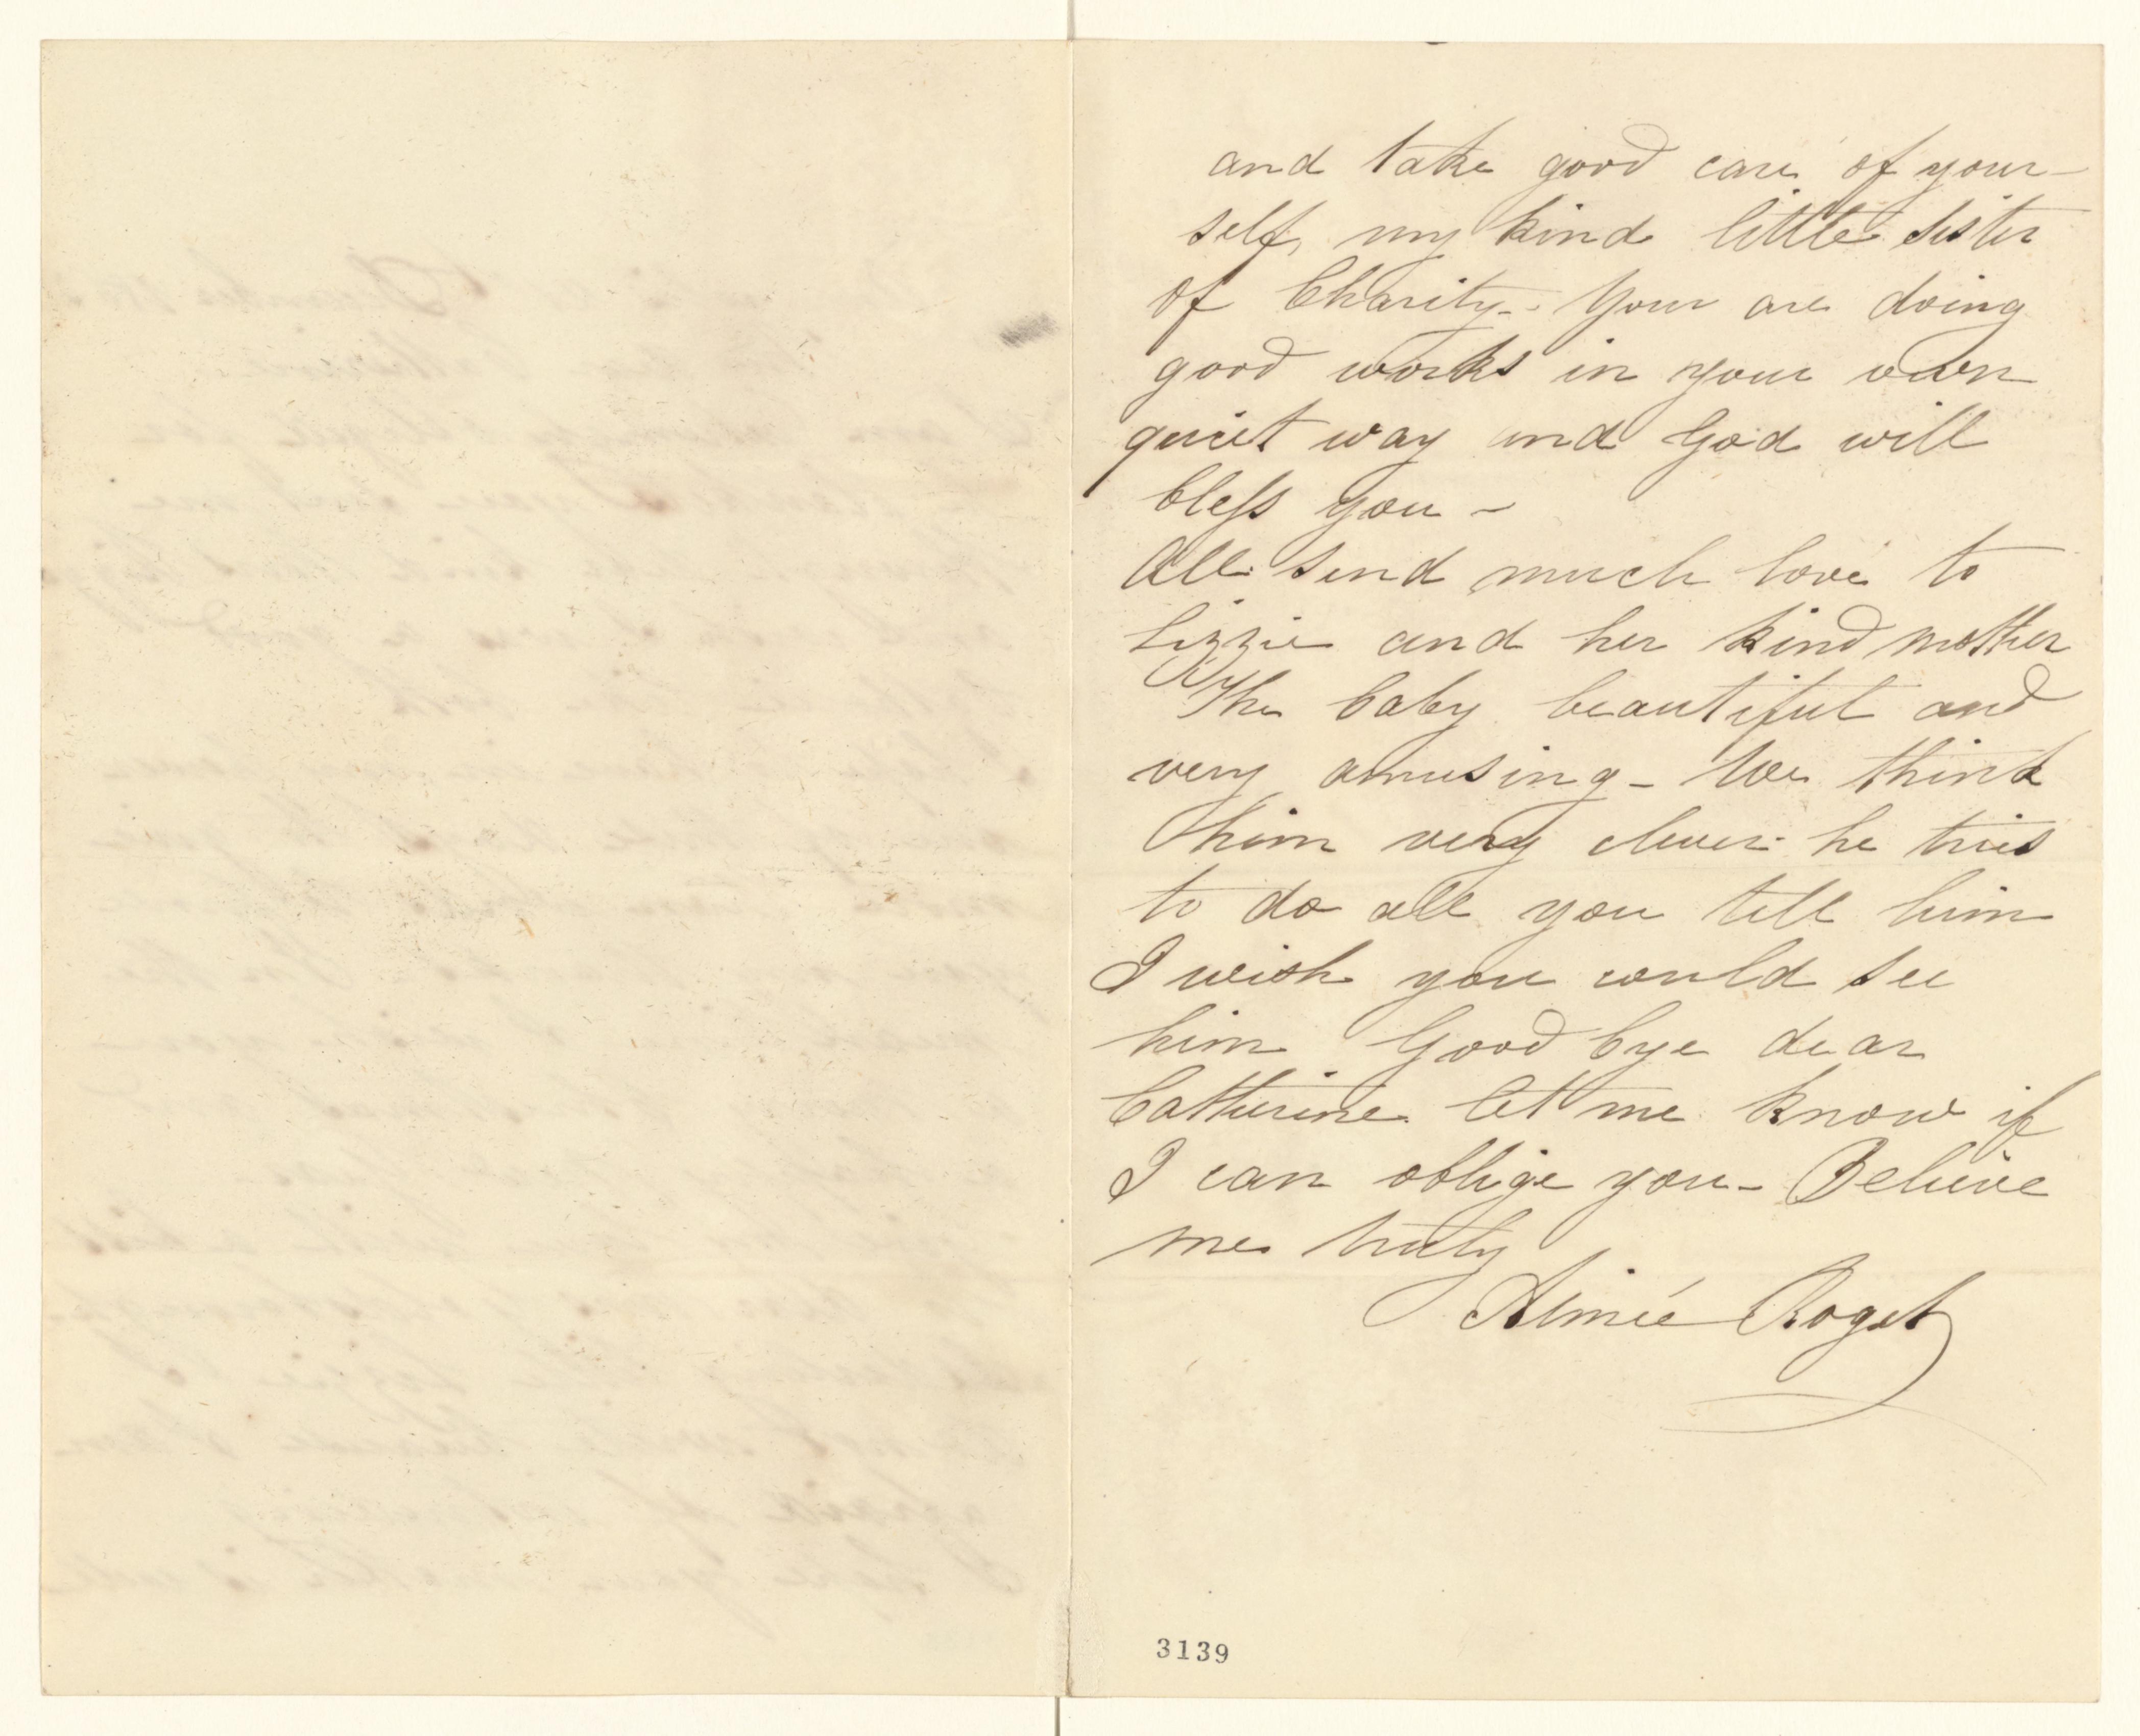 and take good care of your-
self, my kind little sister
of Charity - Your are doing
good works in your own
quiet way and God will
bless you -
All send much love to
Lizzie and her kind mother
The baby beautiful and
very amusing - We think
him very clever he tries
to do all you tell him
I wish you could see
him Good bye dear
Catherine let me know if
I can oblige you - Believe
me truly
Aimée Roget
3139